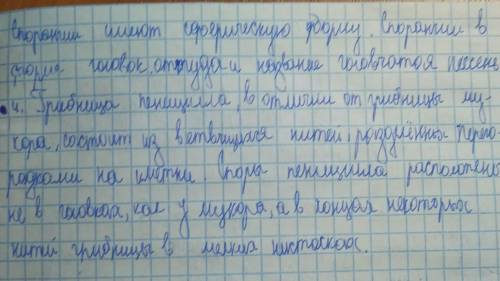 Спорангии имеют сферическую форму. Спорангии в
форме головок, оттуда и название головчатая плесень
4. Грибница пеницилла, в отличии от грибницы му-
кора, состоит из ветвящихся нитей, разделённых перего-
родками на клетки. Споры пеницилла расположены
не в головках, как у мукора, а в концах некоторых
нитей грибницы в мелких кисточках.